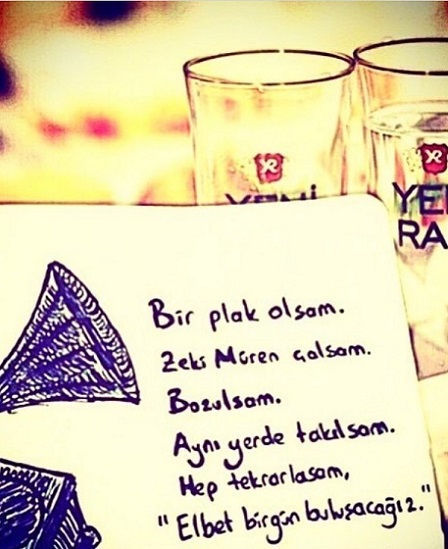 YENİ
YE
RA
Bir plak olsam.
Zeki Müren çalsam.
Bozulsam.
Aynı yerde takılsam.
Hep tekrarlasam,
"Elbet birgün buluşacağız."